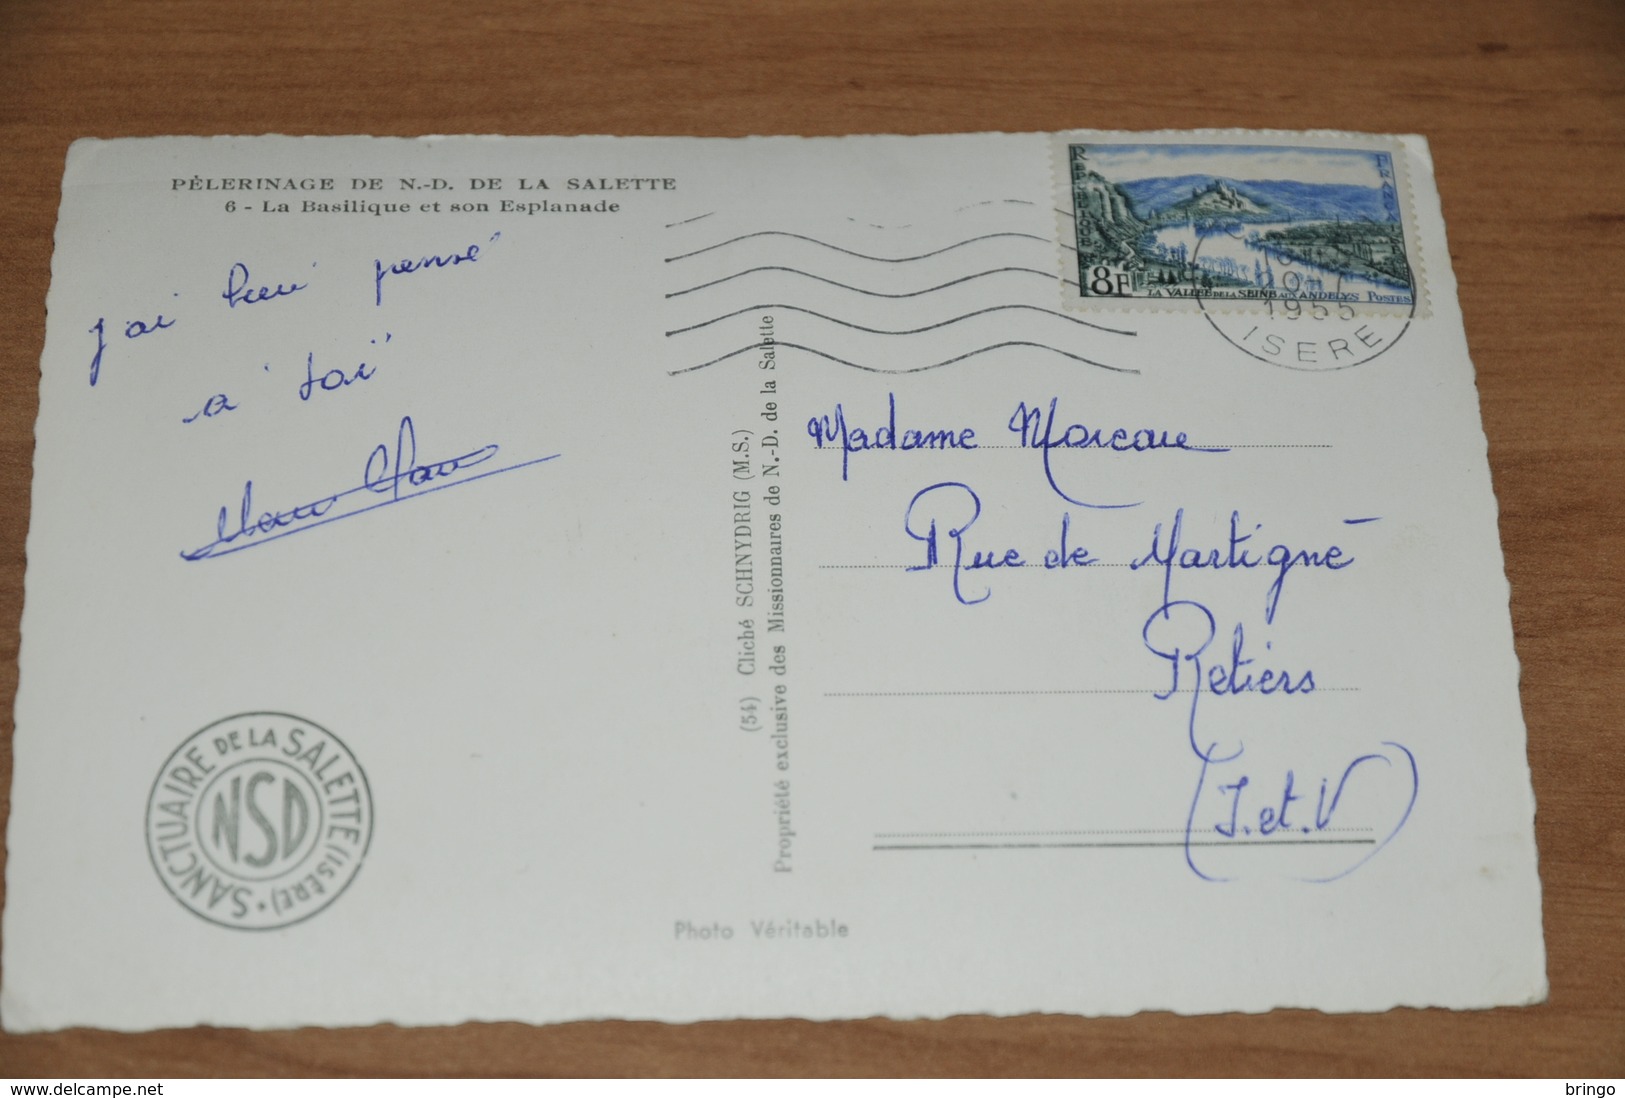 PÈLERINAGE DE N.-D. DE LA SALETTE
6 - La Basilique et son Esplanade
J'ai bien pensé
à toi
REPUBLIQUE
FRANÇAISE
8F
LA VALLÉE DE LA SEINE AUX ANDELYS POSTES
1955
ISERE
(54) Cliché SCHNYDRIG (M.S.)
Propriété exclusive des Missionnaires de N.-D. de la Salette
Madame Moreau
Rue de Martigné
Retiers
(I. et. V)
SANCTUAIRE DE LA SALETTE (ISÈRE)
NSD
Photo Véritable
delcampe.net
bringo